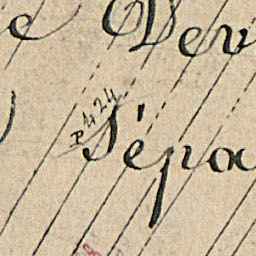 e Dev
p 424
Sépa